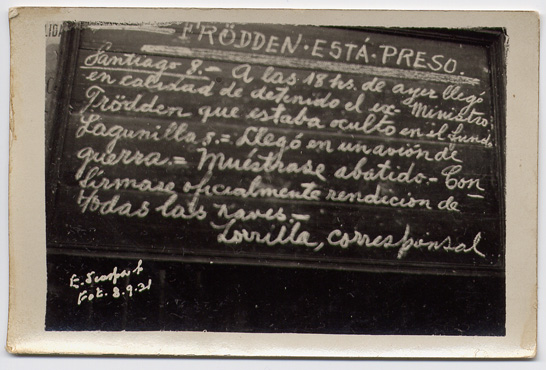 FRÖDDEN·ESTÁ·PRESO
Santiago 8.- A las 18 hs. de ayer llegó
en calidad de detenido el ex Ministro
Frödden que estaba oculto en el fundo
Lagunillas.= Llegó en un avión de
guerra.= Muéstrase abatido.- Con-
fírmase oficialmente rendición de
todas las naves.-
Lorrilla, corresponsal
Fot. 8.9.31